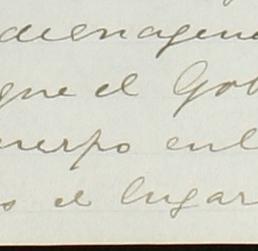 de enagen
que el Gob
uerpo en l
s el lugar